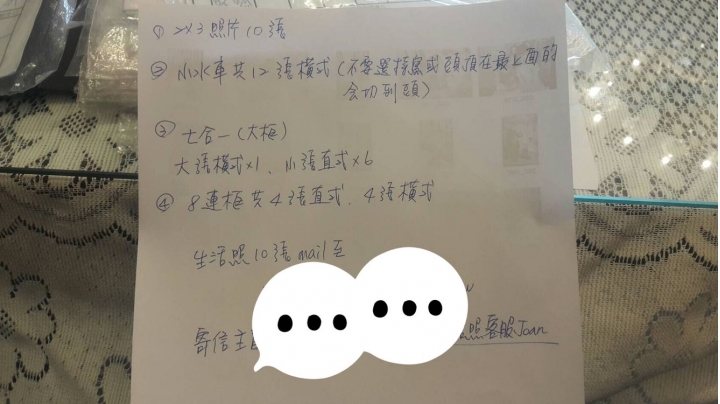 ① 2X3照片10張
② 小水車共12張橫式(不要選特寫或頭頂在最上面的
會切到頭)
③ 七合一(大框)
大張橫式x1、小張直式x6
④ 8連框共4張直式、4張橫式
生活照10張mail至
寄信主
照客服Joan